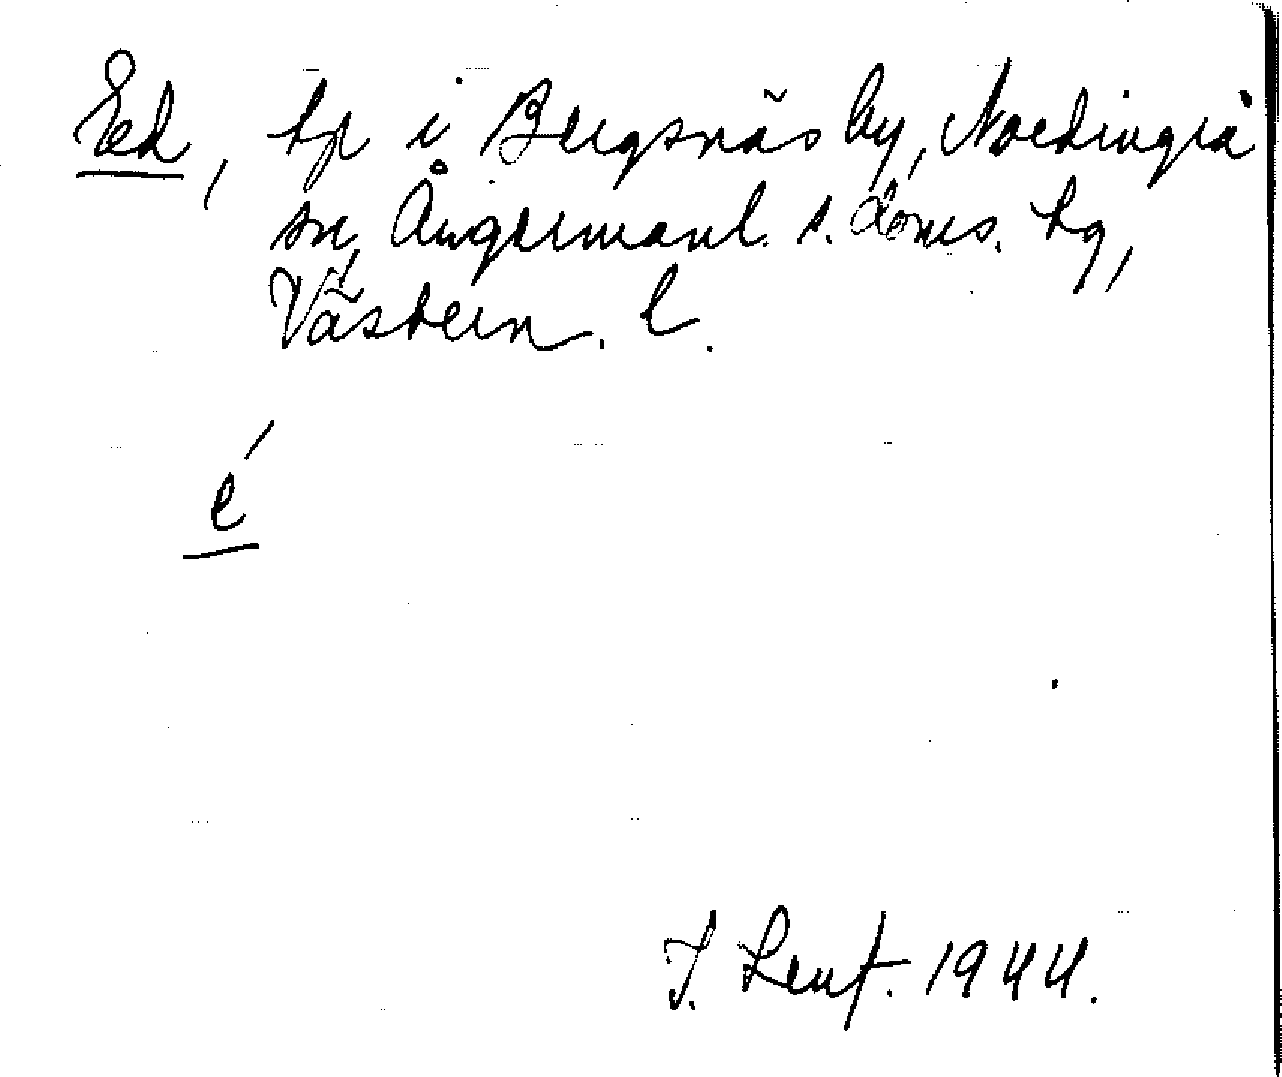 Ed, tp i Bergsnäs by, Nordingrå
sn, Ångermanl. s. doms. tg,
Västern. l.
é
J. Leuf. 1944.